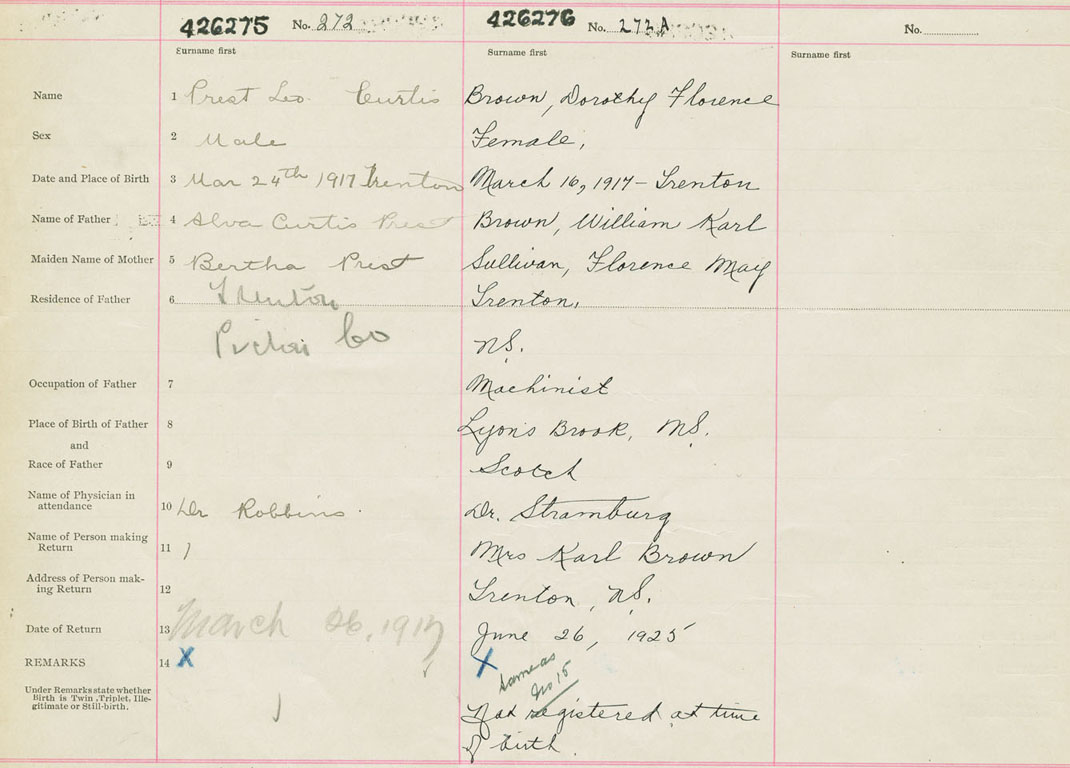 426275 No. 272 426276 No. 272A No.
Surname first Surname first Surname first
Name 1 Prest Leo Curtis Brown, Dorothy Florence
Sex 2 Male Female,
Date and Place of Birth 3 Mar 24th 1917 Trenton March 16, 1917 - Trenton
Name of Father 4 Alva Curtis Prest Brown, William Karl
Maiden Name of Mother 5 Bertha Prest Sullivan, Florence May
Residence of Father 6 Trenton Trenton,
Pictou Co N.S.
Occupation of Father 7 Machinist
Place of Birth of Father 8 Lyons Brook, N.S.
and
Race of Father 9 Scotch
Name of Physician in
attendance 10 Dr Robbins. Dr. Stramburg
Name of Person making
Return 11 Mrs Karl Brown
Address of Person mak-
ing Return 12 Trenton, N.S.
Date of Return 13 March 26, 1917 June 26, 1925
REMARKS 14 X X
same as
No 15
Under Remarks state whether
Birth is Twin, Triplet, Ille-
gitimate or Still-birth.
Not registered at time
of birth.